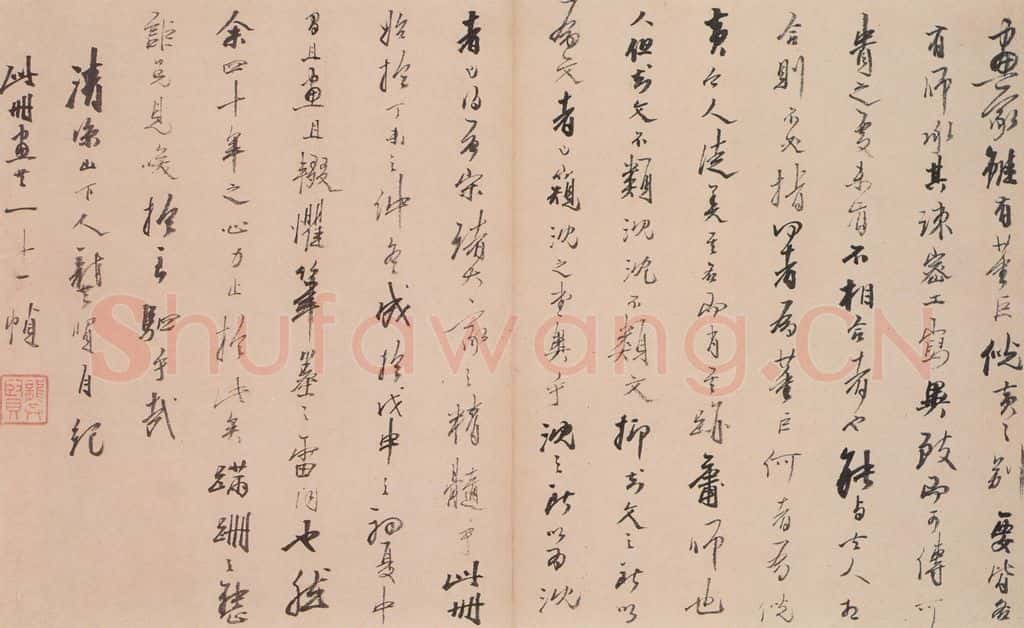 畫家雖有董巨倪黃之別要皆各
有師承其疎密工寫異致而可傳可
貴之處未有不相合者也能與古人相
合則不必指何者為董巨何者為倪
黃今人徒美其名而肖其跡 師也
人但知文不類沈沈不類文抑知文之所以
為文者已窺沈之堂奧乎沈之所以為沈
者已得唐宋諸大家之精髓乎此冊
始於丁未之仲冬成於戊申之初夏中
間且畫且輟懼筆墨之雷同也然
余四十年之心力止於此矣蹣跚之態
詎免見 於 乎哉
清涼山下人龔賢自紀
此冊畫共一十一幀
Shufawang.CN